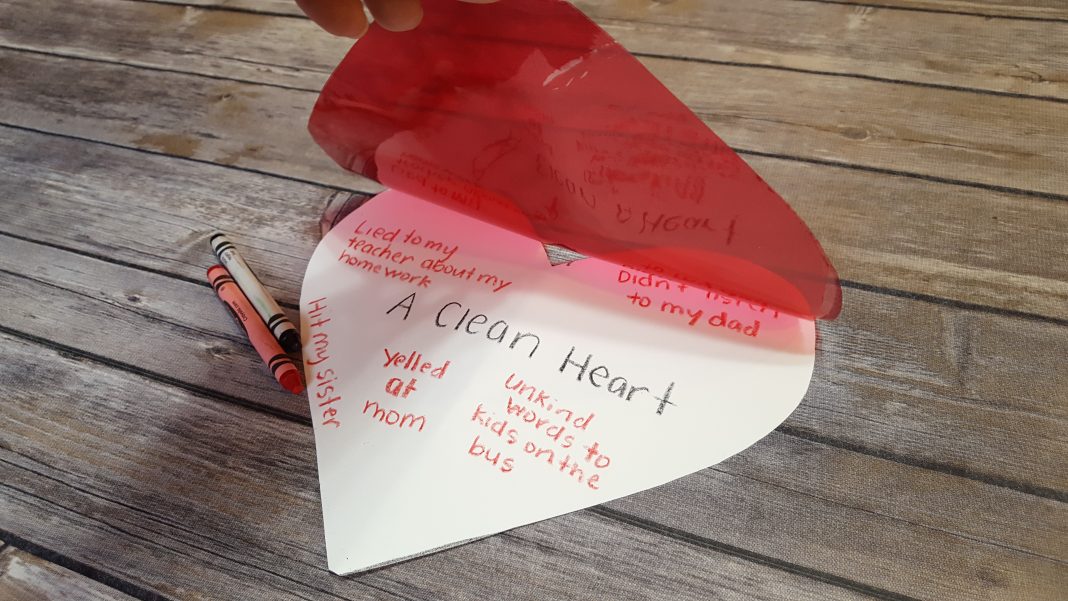 Lied to my
teacher about my
homework
Didn't listen
to my dad
A Clean Heart
Hit my sister
Yelled
at
mom
unkind
words to
kids on the
bus